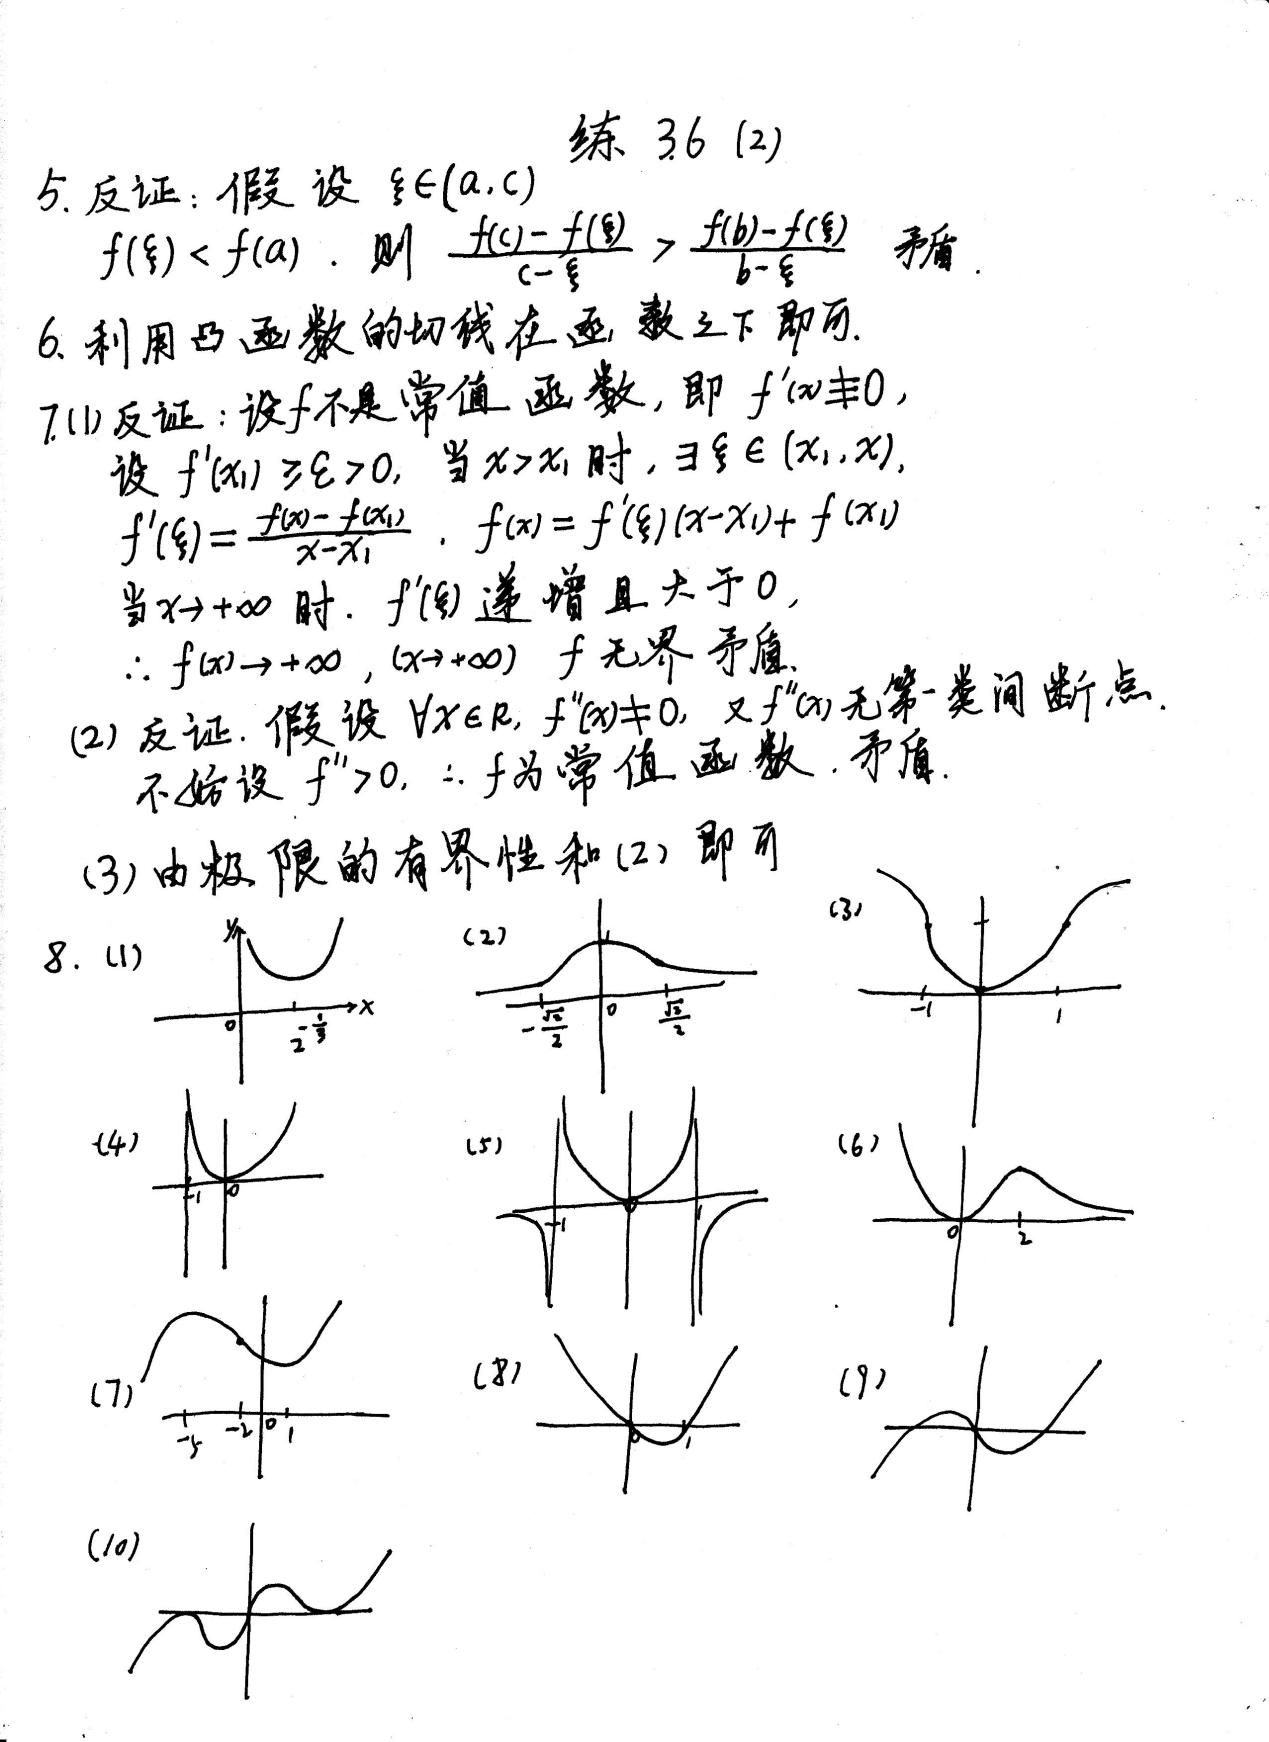 练 3.6 (2)
5. 反证: 假设 ξ∈(a,c)
f(ξ) < f(a). 则 \frac{f(c)-f(ξ)}{c-ξ} > \frac{f(b)-f(ξ)}{b-ξ} 矛盾.
6. 利用凸函数的切线在函数之下即可.
7.(1) 反证: 设f不是常值函数, 即 f'(x)≢0,
设 f'(x₁) ≥ε>0, 当x>x₁时, ∃ξ∈(x₁,x),
f'(ξ)=\frac{f(x)-f(x₁)}{x-x₁}. f(x)=f'(ξ)(x-x₁)+f(x₁)
当x→+∞时. f'(ξ)递增且大于0,
∴ f(x)→+∞, (x→+∞) f无界矛盾.
(2) 反证. 假设 ∀x∈R, f''(x)≠0, 又f''(x)无第一类间断点.
不妨设 f''>0, ∴f为常值函数. 矛盾.
(3) 由极限的有界性和(2)即可
8. (1) y 0 2^{-\frac{1}{3}} x
(2) 1 -\frac{√2}{2} 0 \frac{√2}{2}
(3) -1 1
(4) -1 0
(5) -1 0 1
(6) 0 2
(7) -5 -2 0 1
(8) 0 1
(9)
(10)